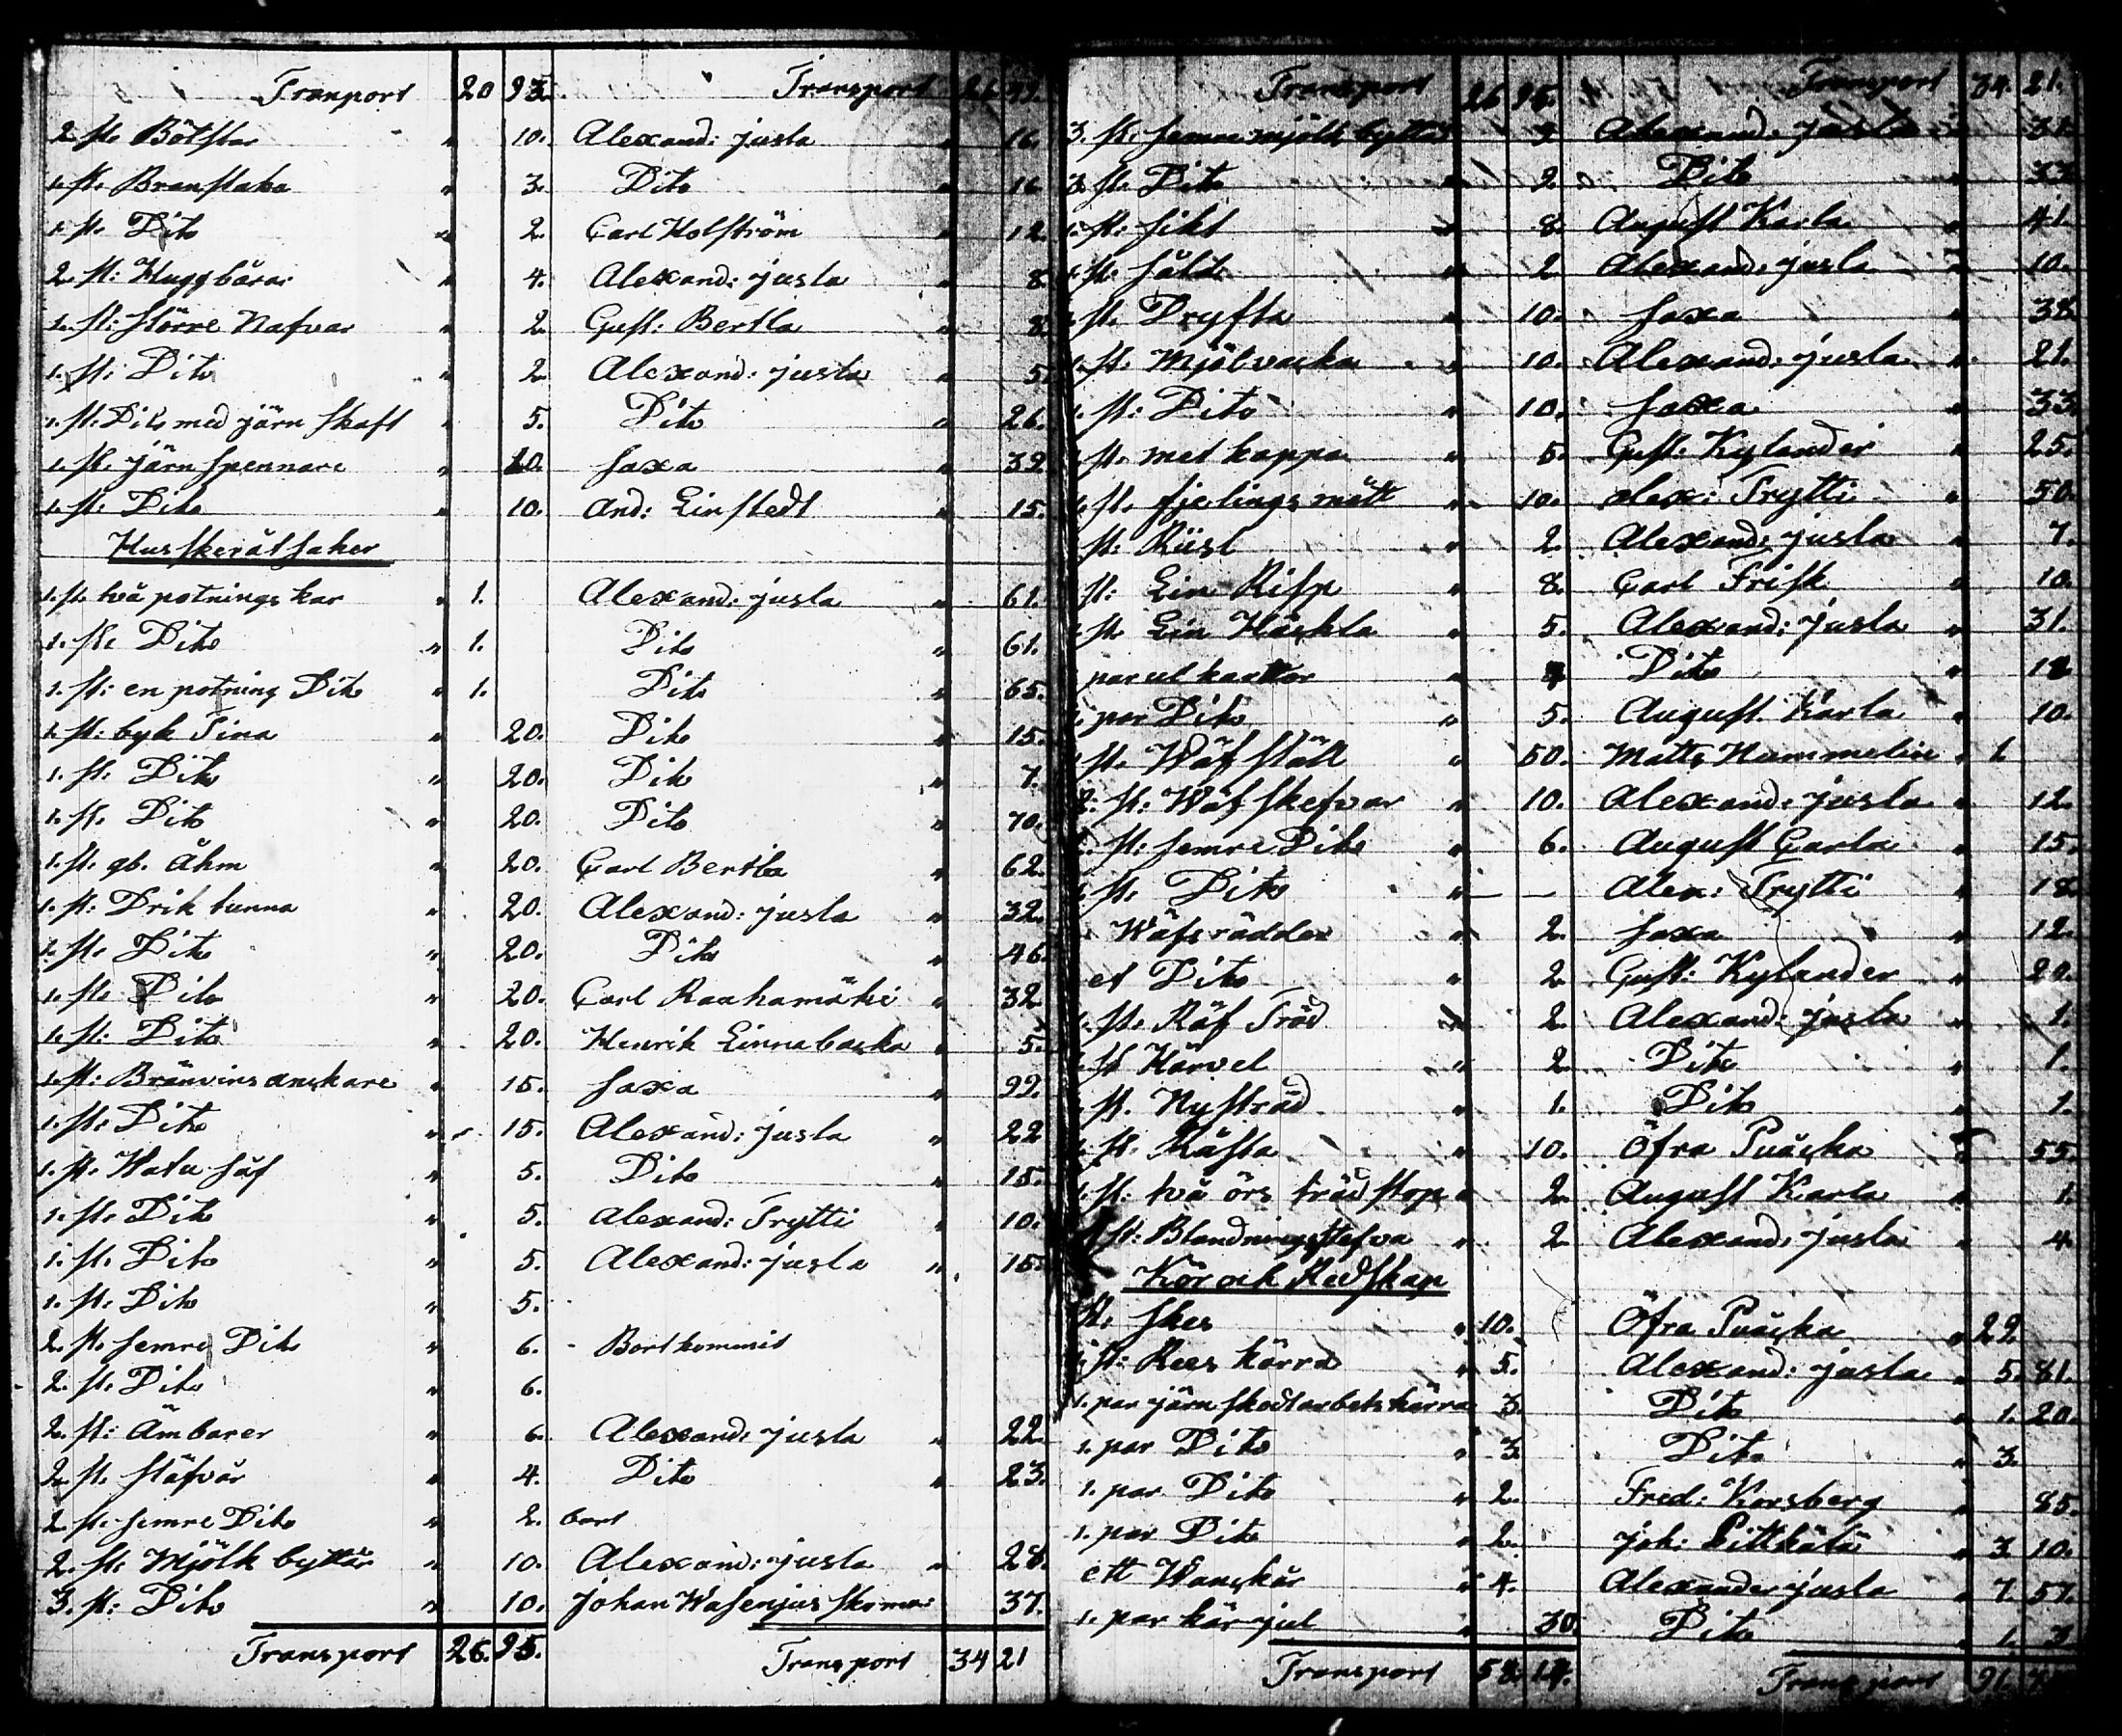 Tranport 20 93. Transport 26 99.
2. st. Bötslar " 10. Alexand: justa " 16.
1. st. Branstaka " 3. Dito " 16
1. st. Dito " 2. Carl Holström " 12.
2. st: Huggbårar " 4. Alexand: justa " 8.
1. st: större Nafvar " 2. Gust: Bertla " 8
1. st: Dito " 2 Alexand: justa " 5.
1. st: Dito med järn skaft " 5. Dito " 26.
1. st. järn spennare " 20. Saxa " 39
1. st. Dito " 10. And: Linstedt " 15.
Husskeråtsaker
1. st. två potnings kar " 1. Alexand: justa " 61.
1. st. Dito " 1. Dito " 61.
1. st: en potning Dito " 1. Dito " 65.
1. st: byk Tina " 20. Dito " 15.
1. st. Dito " 20. Dito " 7.
1. st. Dito " 20. Dito " 70.
1. st. gb. Åhm " 20. Carl Bertla " 62.
1. st: Drik tunna " 20. Alexand: justa " 32.
1. st. Dito " 20. Dito " 46.
1. st. Dito " 20. Carl Raahamäki " 32
1. st: Dito " 20. Henrik Linnabacka " 5.
1. st: Bränvins anskare " 15. Saxa " 99.
1. st: Dito " 15. Alexand: justa " 22
1. st. Watu såf " 5. Dito " 15.
1. st. Dito " 5. Alexand: Trytti " 10.
1. st. Dito " 5. Alexand: justa " 15.
1. st: Dito " 5.
2. st. semre Dito " 6. - Bortkommit
2. st. Dito " 6.
2. st: Ämbarer " 6. Alexand: justa " 22.
2. st. stäfvår " 4. Dito " 23.
2. st. semre Dito " 2. bort
2. st: Mjölk byttår " 10. Alexand: justa " 28.
3. st: Dito " 10. Johan Wasenjus skoma: 37.
Transport 26. 95. Transport 34 21
Transport 26 95. Transport 34. 21.
3. st: semre mjölk byttor Alexand: justa 31
3. st. Dito " 2. Dito " 33
1. st: sikt " 8. August Karla " 41.
1. st: såld " 2 Alexand: justa " 10.
st. Dryfta " 10. Saxa " 38
1. st. Mjölvacka " 10. Alexand: justa " 21.
1. st: Dito " 10. Saxa " 33.
st. met kappa " 5. Gust: Kylander " 25.
1. st. fjelings mått " 10. Alex: Trytti " 50
st: Riisl " 2. Alexand: justa " 7.
st: Lin Risp " 8. Carl Frisk " 10.
st. Lin Häckla " 5. Alexand: justa " 31.
par ul kardor " Dito " 12
1. par Dito " 5. August. Karla " 10.
1 st. Wäf ställ " 50. Matts Hammelin " 1
2. st: Wäf skefvar " 10. Alexand: justa " 12.
st: semre Dito " 6. August Carla " 15.
1 st. Dito " — Alex: Trytti " 18
Wäfsrädder " 2. Saxa " 12.
et Dito " 2. Gust: Kylander " 20.
1. st. Råf Tråd 2. Alexand: justa " 1.
st Härvel " 2. Dito " 1.
1. st. Nystråd " 1. Dito " 1.
1. st. Råsta " 10. Öfra Puåcka " 55.
1. st: två örs träd stop " 2. August Karla 1.
st: Blandningsstefva " 2 Alexand: justa " 4.
Kör och Redskap
st. skes " 10. Öfra Puåcka " 22
1. st: Rees kärra " 5. Alexand: justa " 5. 81.
1. par järn skodt arbets kärra 3. Dito " 1. 20.
1. par Dito " 3. Dito " 3.
1. par Dito " 2. Fred: Korsberg " 85.
1. par Dito " 2. Joh: Pittkälä " 3 10.
ett Wanckår " 4. Alexander justa " 7. 57.
1. par kär jul " 30. Dito " 1. 3
Transport 58. 18. Transport 91.